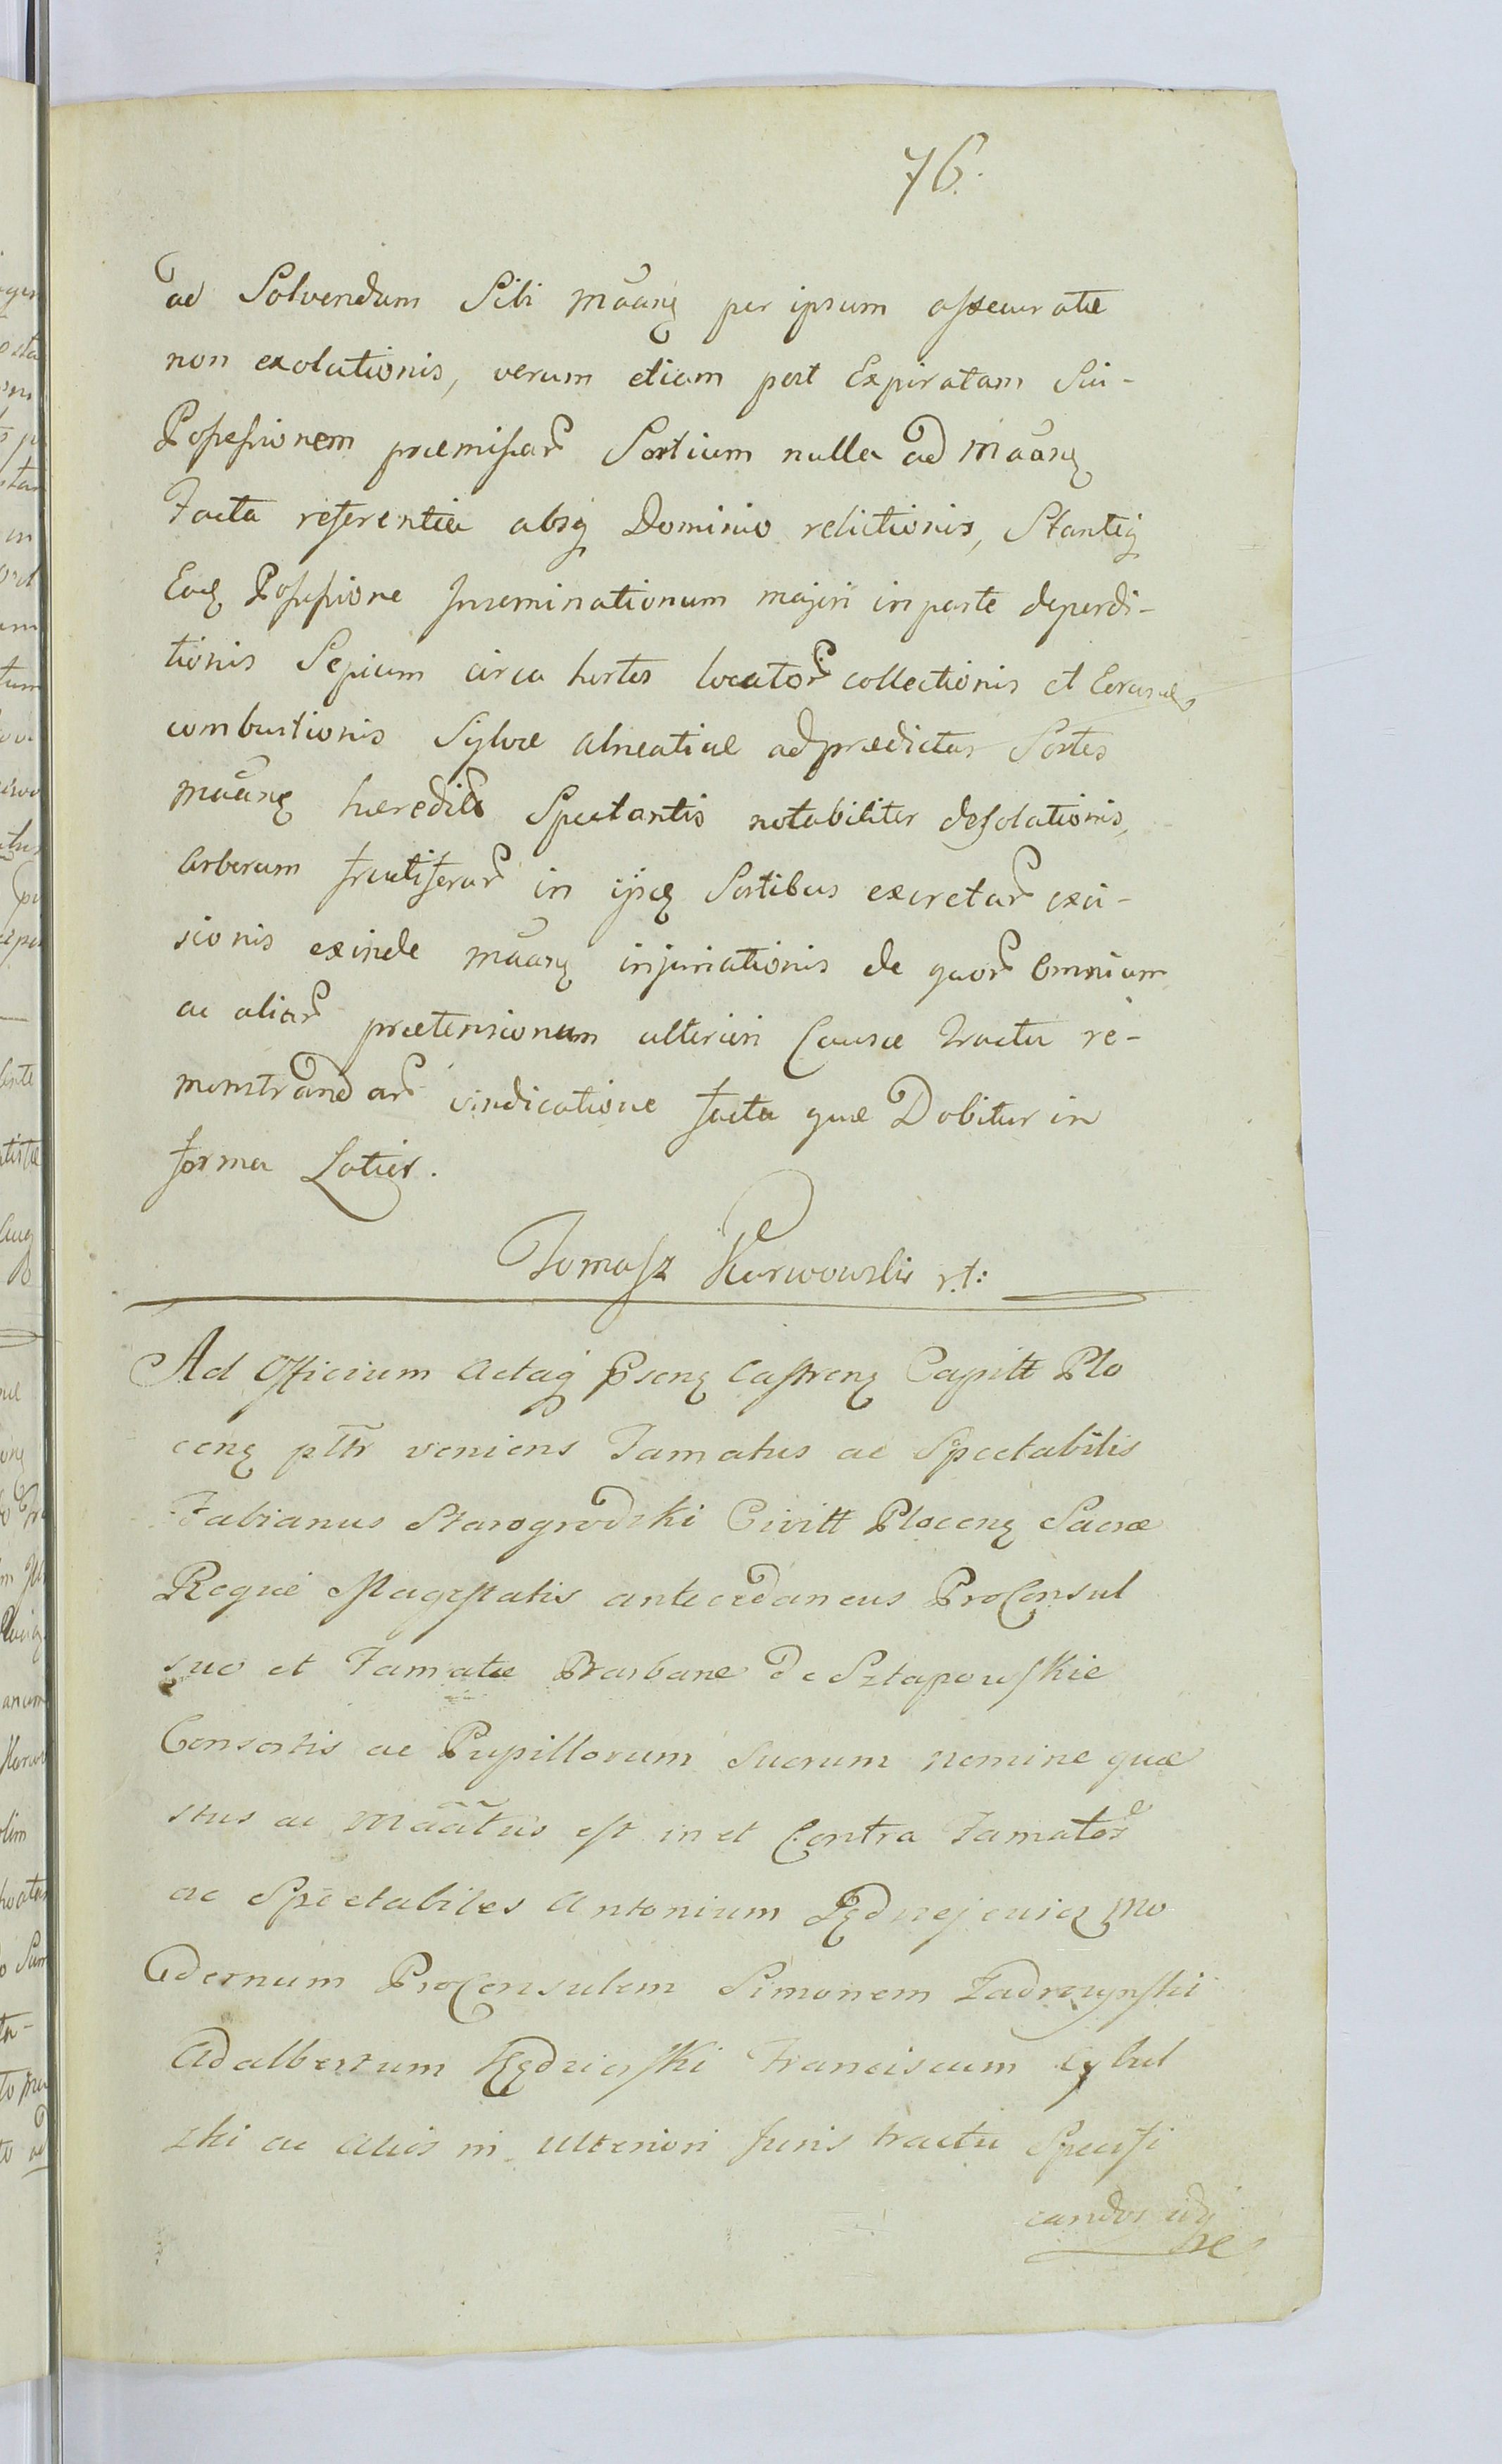 76.
ad Solvendum Sibi Mãanę per ipsum assecuratæ
non exolutionis, verum etiam post Expiratam Sui-
Possessionem præmissar Sortium nulla ad Mãanę
Facta referentia absq Dominio relictionis, Stantiq
Eaę Possessione Inseminationum majori in parte deperdi-
tionis Sepium circa hortos locator collectionis et
combustionis Sylvæ alneatiæ ad prædictas Sortes
Mãanę hæredite Spectantis notabiliter desolationis,
Arborum fructiferar in ijsę Sortibus excretar exci-
sionis exinde Mãanę injuriationis de quor Omnium
ac aliar prætensionum ulteriori Causæ tractu re-
monstrandar vindicatione facta quæ Dabitur in
forma Latior.
Tomasz Karwowski rt:
Ad Officium Actaq Psenę Castrenę Capitt Plo
cenę pttr veniens Famatus ac Spectabilis
Fabianus Starogrodzki Civitt Plocenę Sacræ
Regiæ Magestatis antecedaneus ProConsul
suo et Famatæ Barbaræ de Sztapowskie
Consortis ac Pupillorum Suorum nomine quæ
stus ac Mããtus est in et Contra Famatos
ac Spectabiles Antonium Mo
dernum ProConsulem Simonem Zadrozynski
Adalbertum Kędzierski Franciscum Cybul
ski ac Alios in Ulteriori Juris tractu Specifi
candos idq